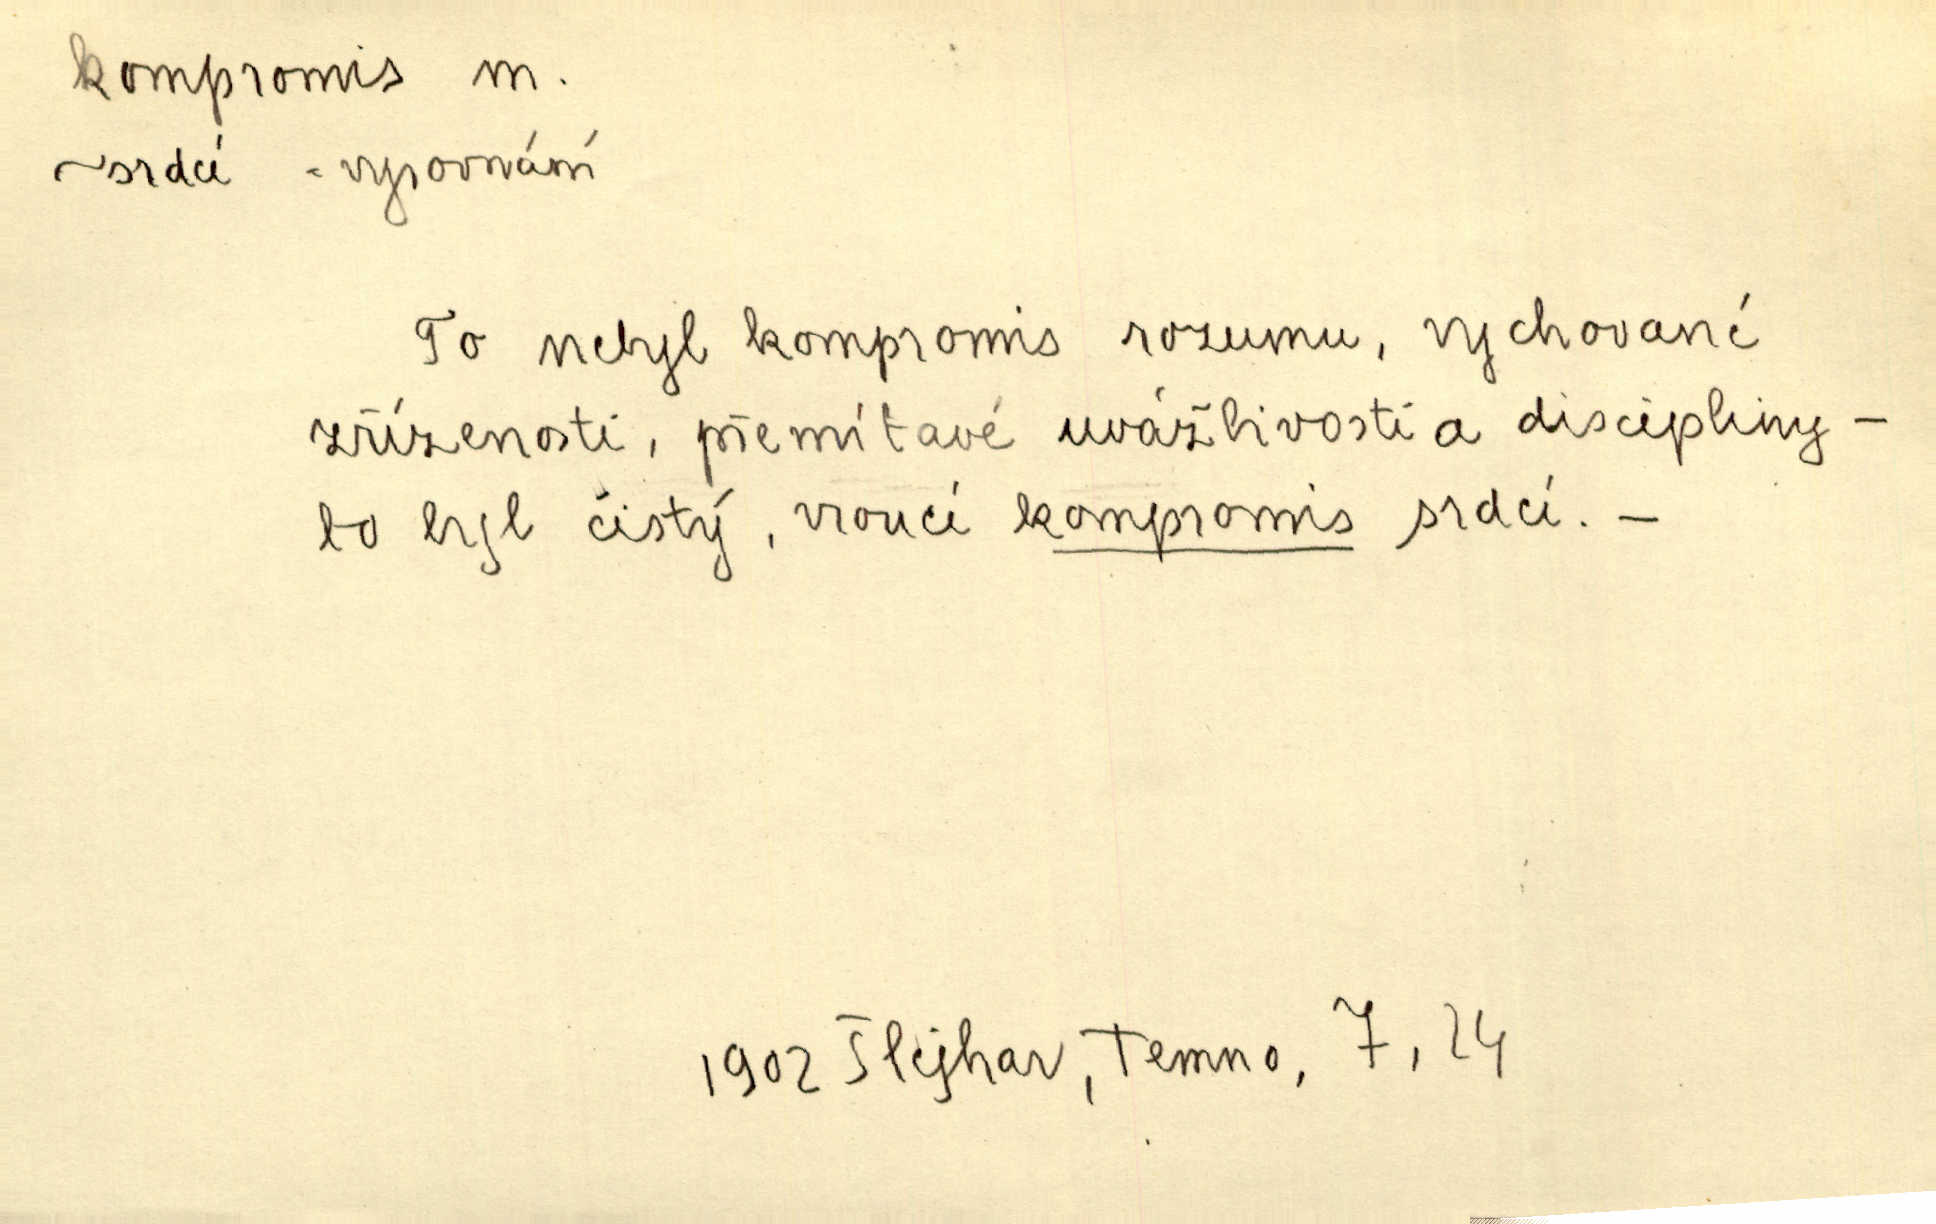 kompromis m.
~srdcí - vyrovnání
To nebyl kompromis rozumu, vychované
zřízenosti, přemítavé uvážlivosti a discipliny –
to byl čistý, vroucí kompromis srdcí. –
1902 Šlejhar, Temno, 7, 24